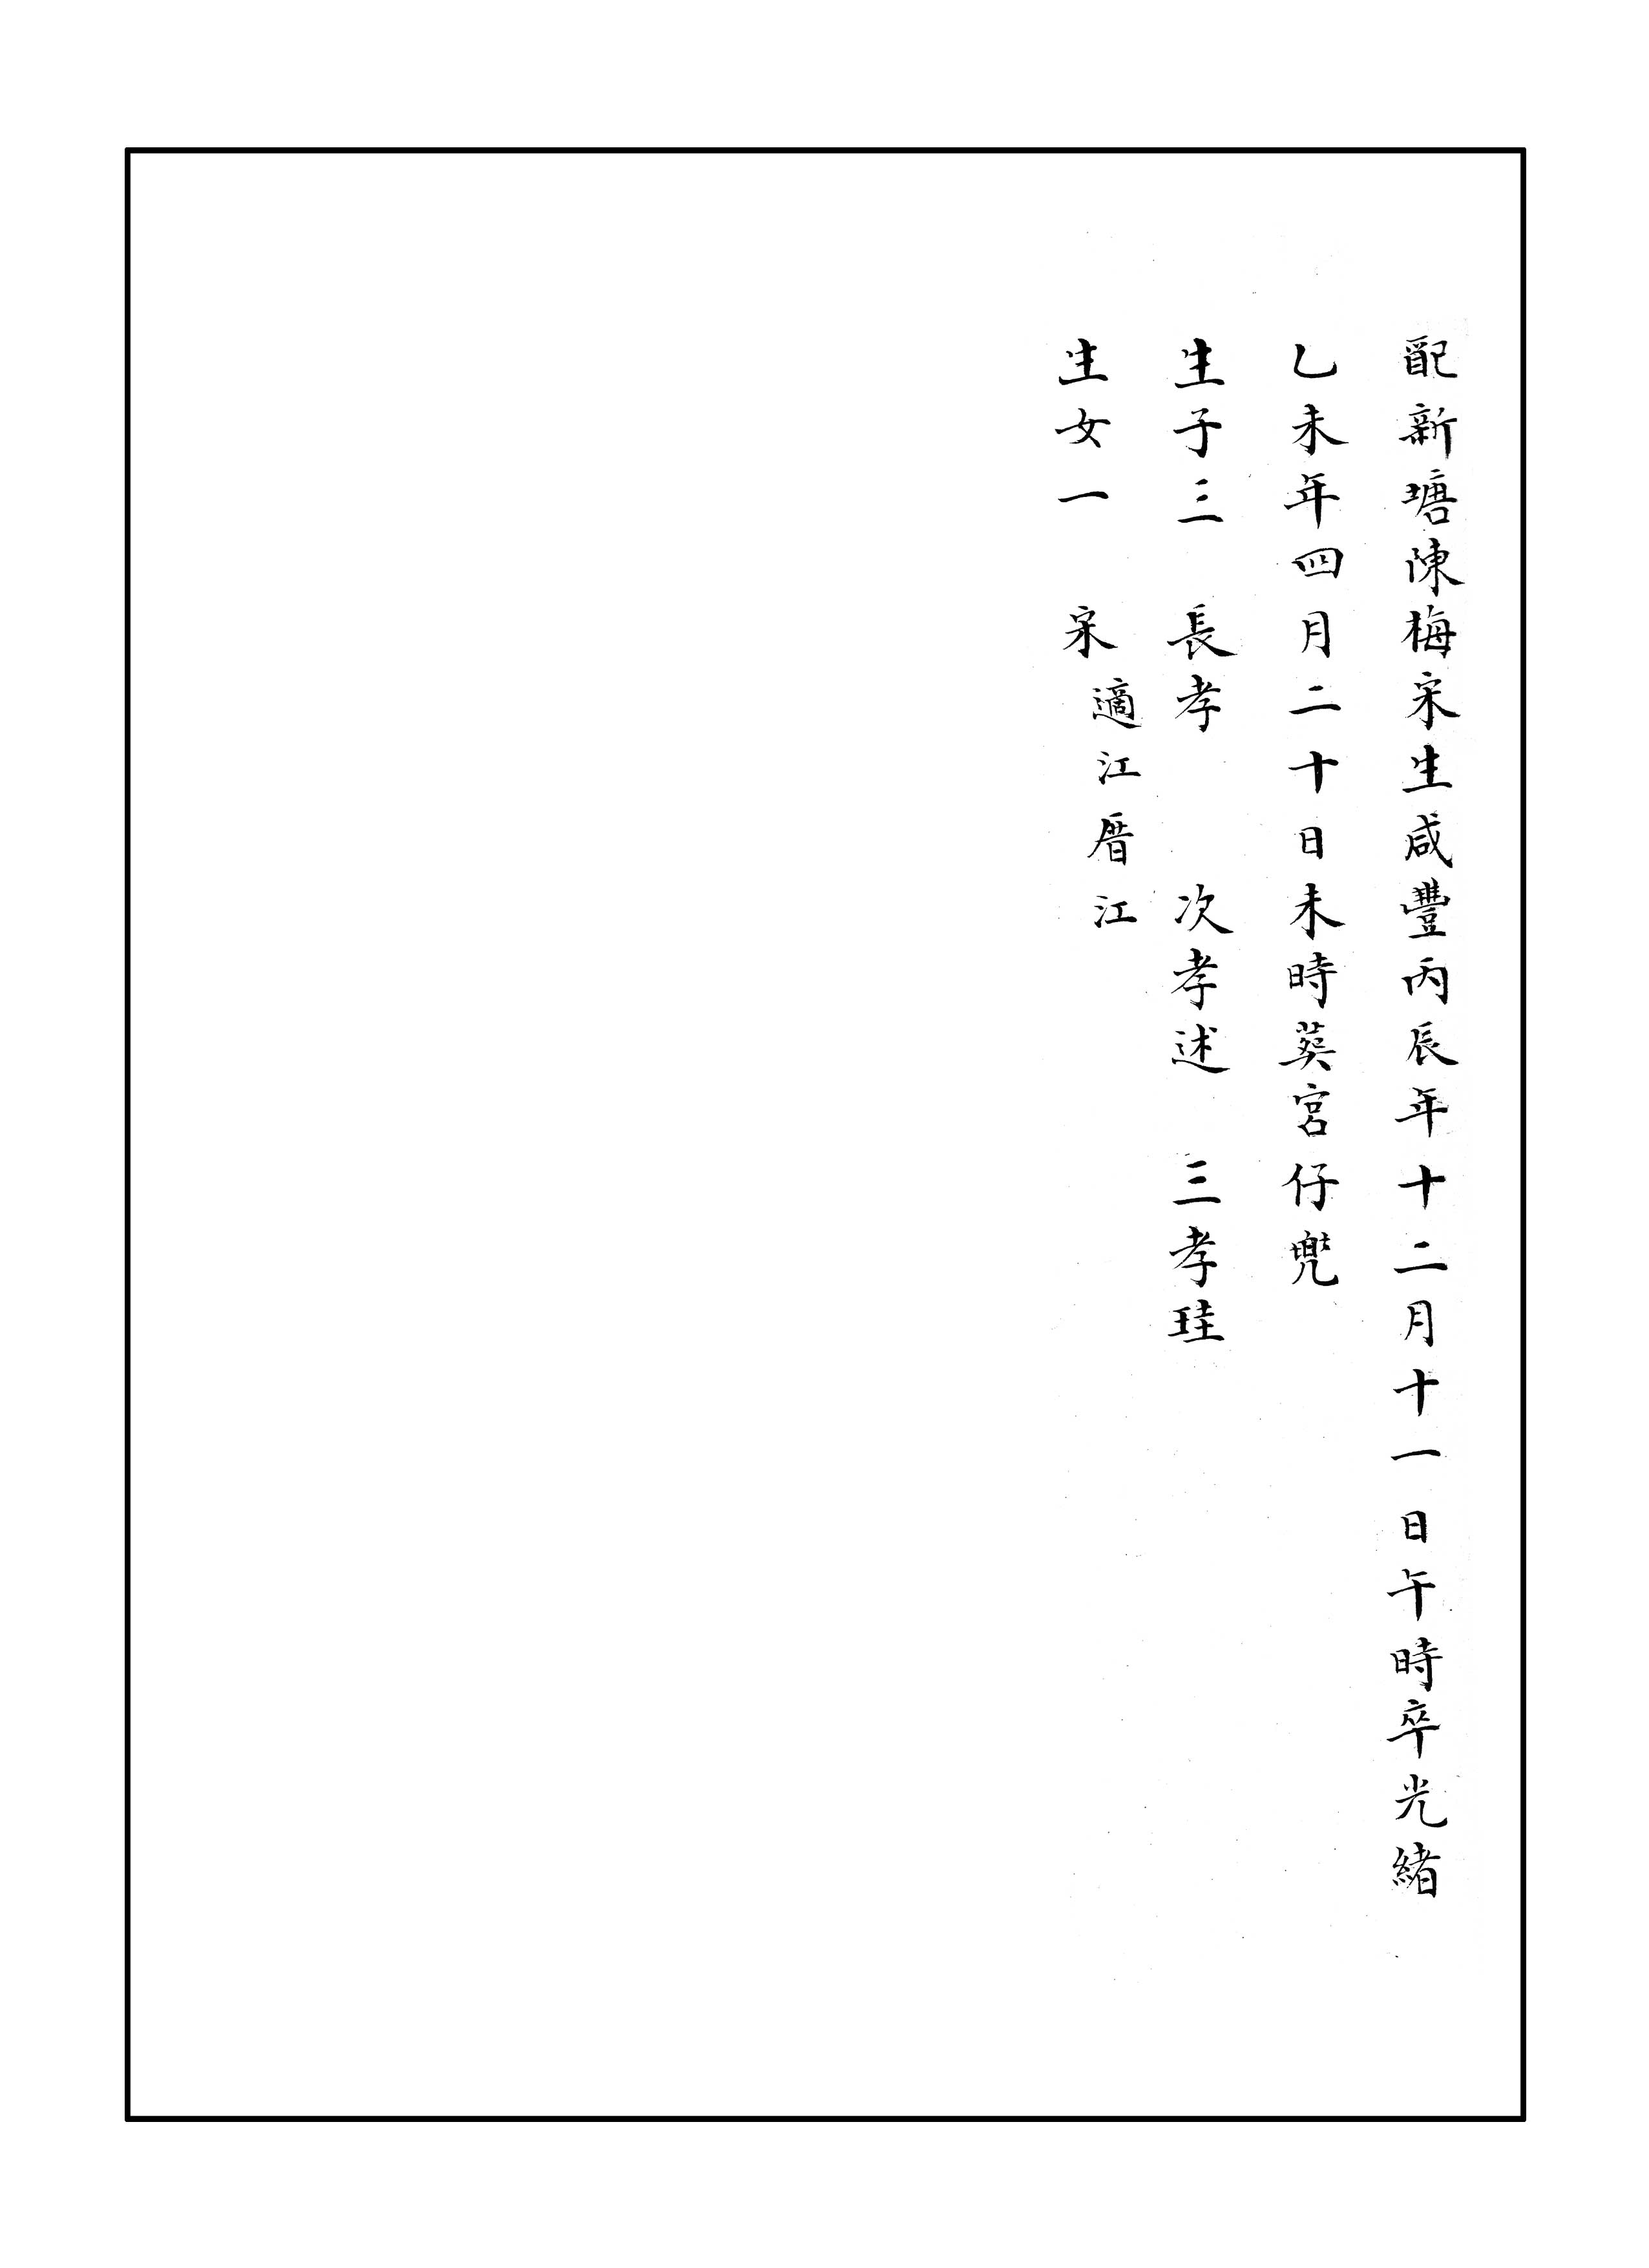 配新塘陳梅宋生咸豐丙辰年十二月十一日午時卒光緒
乙未年四月二十日未時葬宮仔兜
生子三　長孝　次孝述　三孝珪
生女一　宋適江厝江